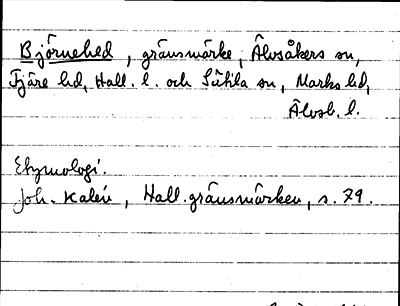 Björnehed, gränsmärke, Älvsåkers sn,
Fjäre hd, Hall. l. och Sätila sn, Marks hd,
Älvsb. l.
Etymologi.
Joh. Kalén, Hall. gränsmärken, s. 79.